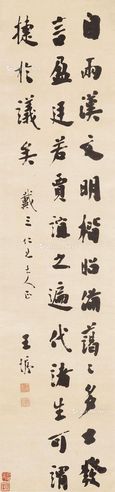 自兩漢文明楷昭備藹藹多士發
言盈廷若賈誼之遍代諸生可謂
捷於議矣
戴三仁兄大人正
王瓘